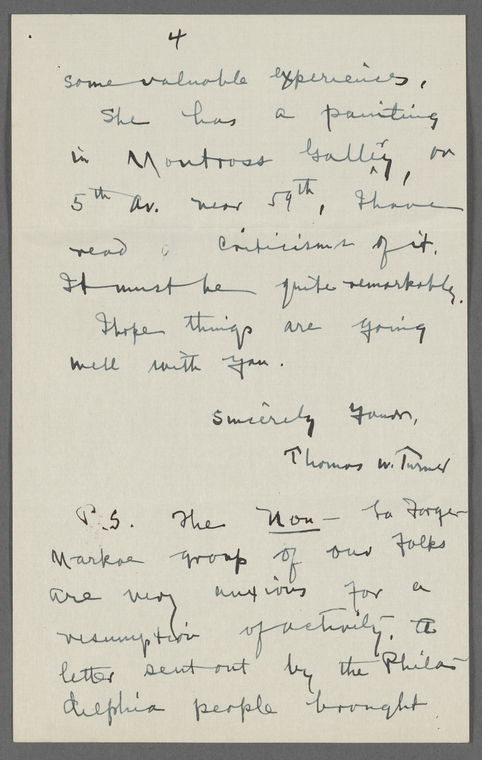 4
some valuable experiences.
She has a painting
in Montross Gallery, on
5th Av. near 59th, I have
read criticisms of it.
It must be quite remarkable.
I hope things are going
well with you.
Sincerely Yours,
Thomas W. Turner
P.S. The Non- La Farge-
Markoe group of our folks
are very anxious for a
resumption of activity. A
letter sent out by the Phila-
delphia people brought